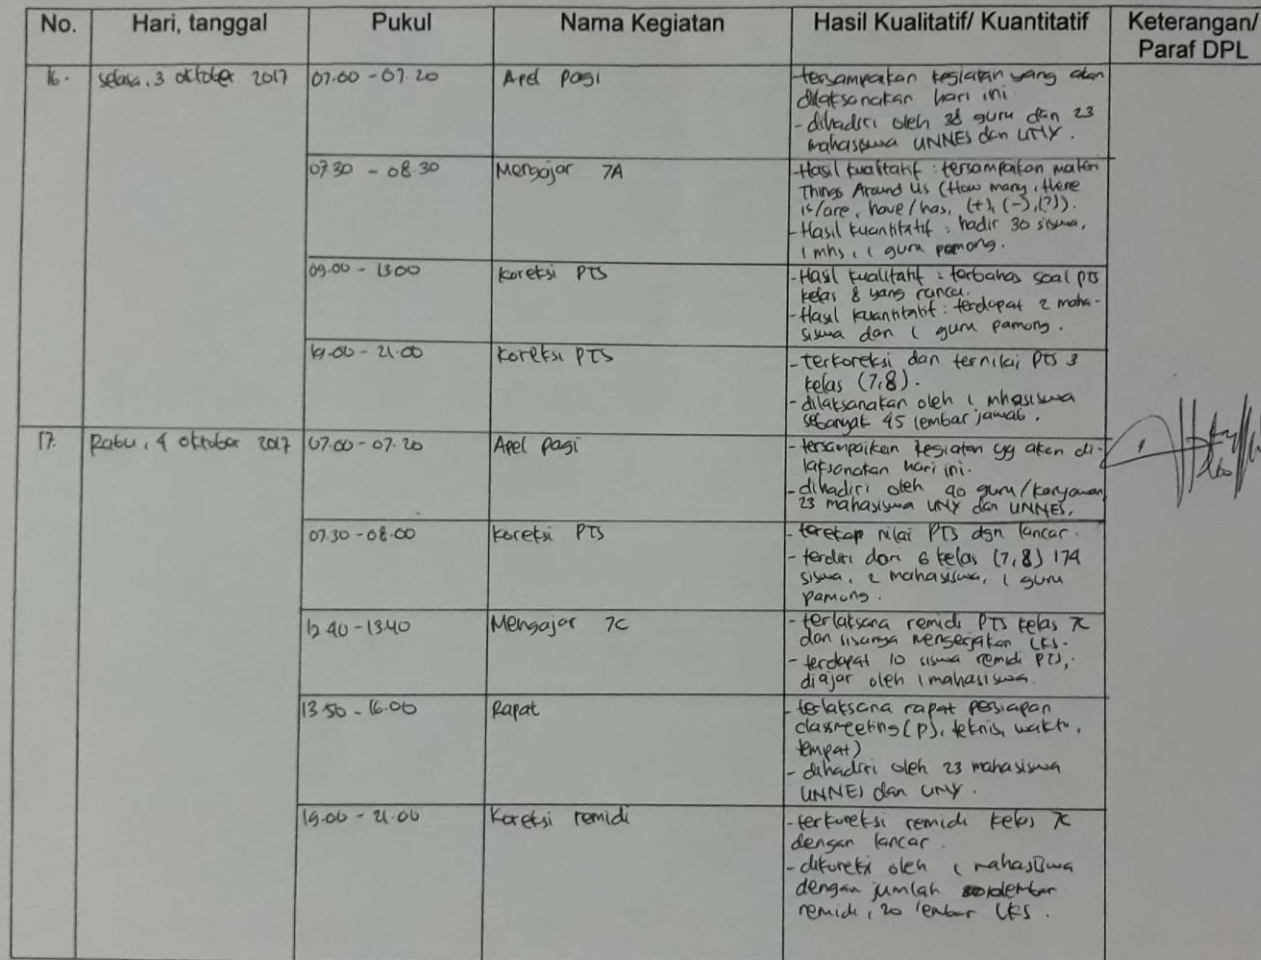 No.
Hari, tanggal
Pukul
Nama Kegiatan
Hasil Kualitatif/ Kuantitatif
Keterangan/
Paraf DPL
16.
selasa, 3 oktober 2017
07.00 - 07.20
Apel pagi
- tersampaikan kegiatan yang akan
dilaksanakan hari ini.
- dihadiri oleh 38 guru dan 23
mahasiswa UNNES dan UNY.
07.30 - 08.30
Mengajar 7A
- Hasil kualitatif : tersampaikan materi
Things Around Us (How many, there
is/are, have/has, (+), (-), (?)).
- Hasil kuantitatif : hadir 30 siswa,
1 mhs, 1 guru pamong.
09.00 - 13.00
Koreksi PTS
- Hasil kualitatif : terbahas soal PTS
kelas 8 yang rancu.
- Hasil kuantitatif : terdapat 2 maha-
siswa dan 1 guru pamong.
19.00 - 21.00
Koreksi PTS
- terkoreksi dan ternilai PTS 3
kelas (7,8).
- dilaksanakan oleh 1 mhasiswa
sebanyak 45 lembar jawab.
17.
Rabu, 4 oktober 2017
07.00 - 07.20
Apel pagi
- tersampaikan kegiatan yg akan di-
laksanakan hari ini.
- dihadiri oleh 40 guru/karyawan,
23 mahasiswa UNY dan UNNES.
07.30 - 08.00
Koreksi PTS
- terekap nilai PTS dgn lancar.
- terdiri dari 6 kelas (7,8) 174
siswa, 2 mahasiswa, 1 guru
pamong.
12.40 - 13.40
Mengajar 7C
- terlaksana remidi PTS kelas 7C
dan sisanya mengerjakan LKS.
- terdapat 10 siswa remidi PTS,
diajar oleh 1 mahasiswa.
13.50 - 16.00
Rapat
- terlaksana rapat persiapan
classmeeting (PJ, teknis, waktu,
tempat)
- dihadiri oleh 23 mahasiswa
UNNES dan UNY.
19.00 - 21.00
Koreksi remidi
- terkoreksi remidi kelas 7C
dengan lancar.
- dikoreksi oleh 1 mahasiswa
dengan jumlah lembar
remidi, 20 lembar LKS.